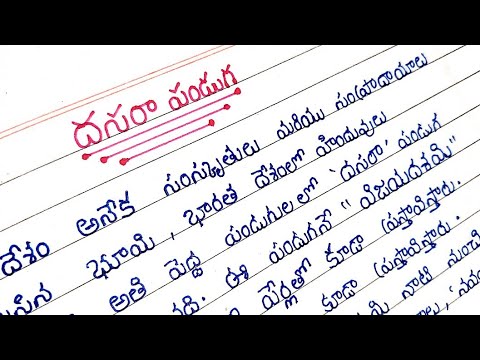 దసరా పండుగ
దేశం అనేక సంస్కృతులు మరియు సంప్రాదాయాలు
భూమి, భారత దేశంలో హిందువులు
అతి పెద్ద పండుగులలో 'దసరా' పండుగ
ఈ పండుగనే "విజయదశమి"
పేర్లతో కూడా ప్రస్తావిస్తారు.
కూడా ప్రస్తావిస్తారు.
నాటి నుంచి